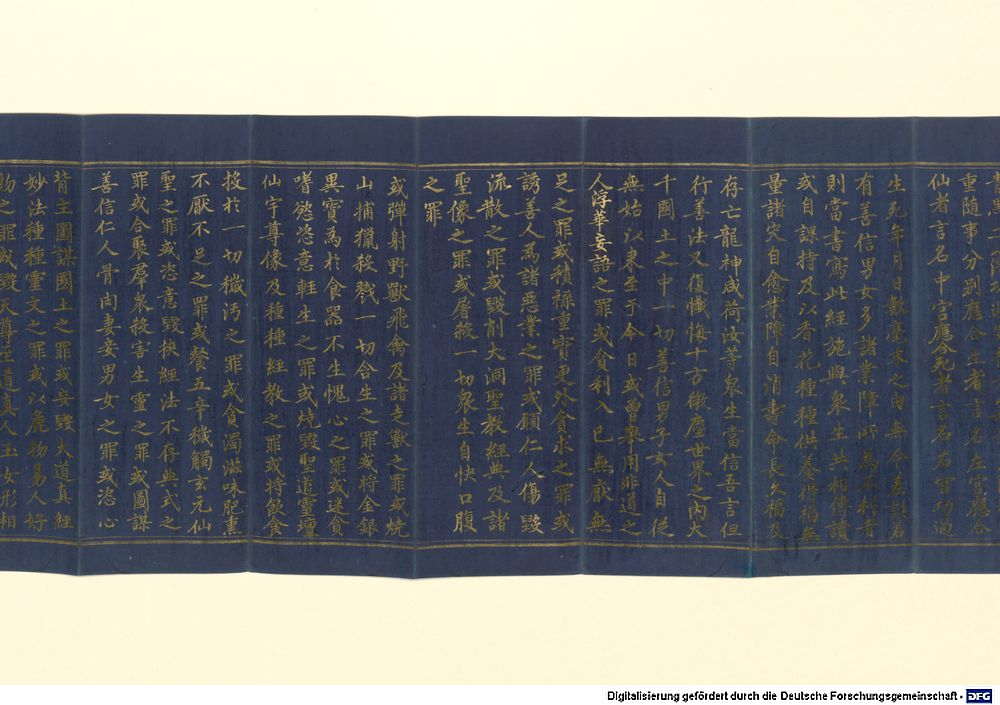 重隨事分別應合生者言名左宮應合
仙者言名中宮應合死者言名右宮功過
生死年月日數毫末之由無令差誤若
有善信男女多諸業障所為不利者
則當書寫此經施與眾生共相傳讀
或自課持及以香花種種供養得福無
量諸灾自愈業障自消壽命長久福及
存亡龍神咸荷汝等眾生當信吾言但
行善法又復懺悔十方微塵世界之內大
千國土之中一切善信男子女人自從
無始以來至于今日或曾用非道之
人浮華妄語之罪或貪利入己無猒無
足之罪或積祿重寶更外貪求之罪或
謗善人為諸惡業之罪或願仁人傷毀
流散之罪或毀削大洞聖教經典及諸
聖像之罪或屠殺一切眾生自快口腹
之罪
或彈射野獸飛禽及諸走獸之罪或燒
山捕獵殺戮一切含生之罪或將金銀
異寶為於食器不生愧心之罪或迷貪
嗜慾恣意輕生之罪或燒毀聖道靈壇
仙宇尊像及種種經教之罪或將飲食
投於一切穢污之罪或貪濁滋味肥熏
不厭不足之罪或餐五辛穢觸玄元仙
聖之罪或恣意毀抉經法不存典式之
罪或合聚羣眾殺害生靈之罪或圖謀
善信仁人骨肉妻妾男女之罪或恣心
背主圖謀國土之罪或妄毀大道真經
妙法種種靈文之罪或以麁物易人好
物之罪或毀天尊至道真人玉女形相
Digitalisierung gefördert durch die Deutsche Forschungsgemeinschaft - DFG